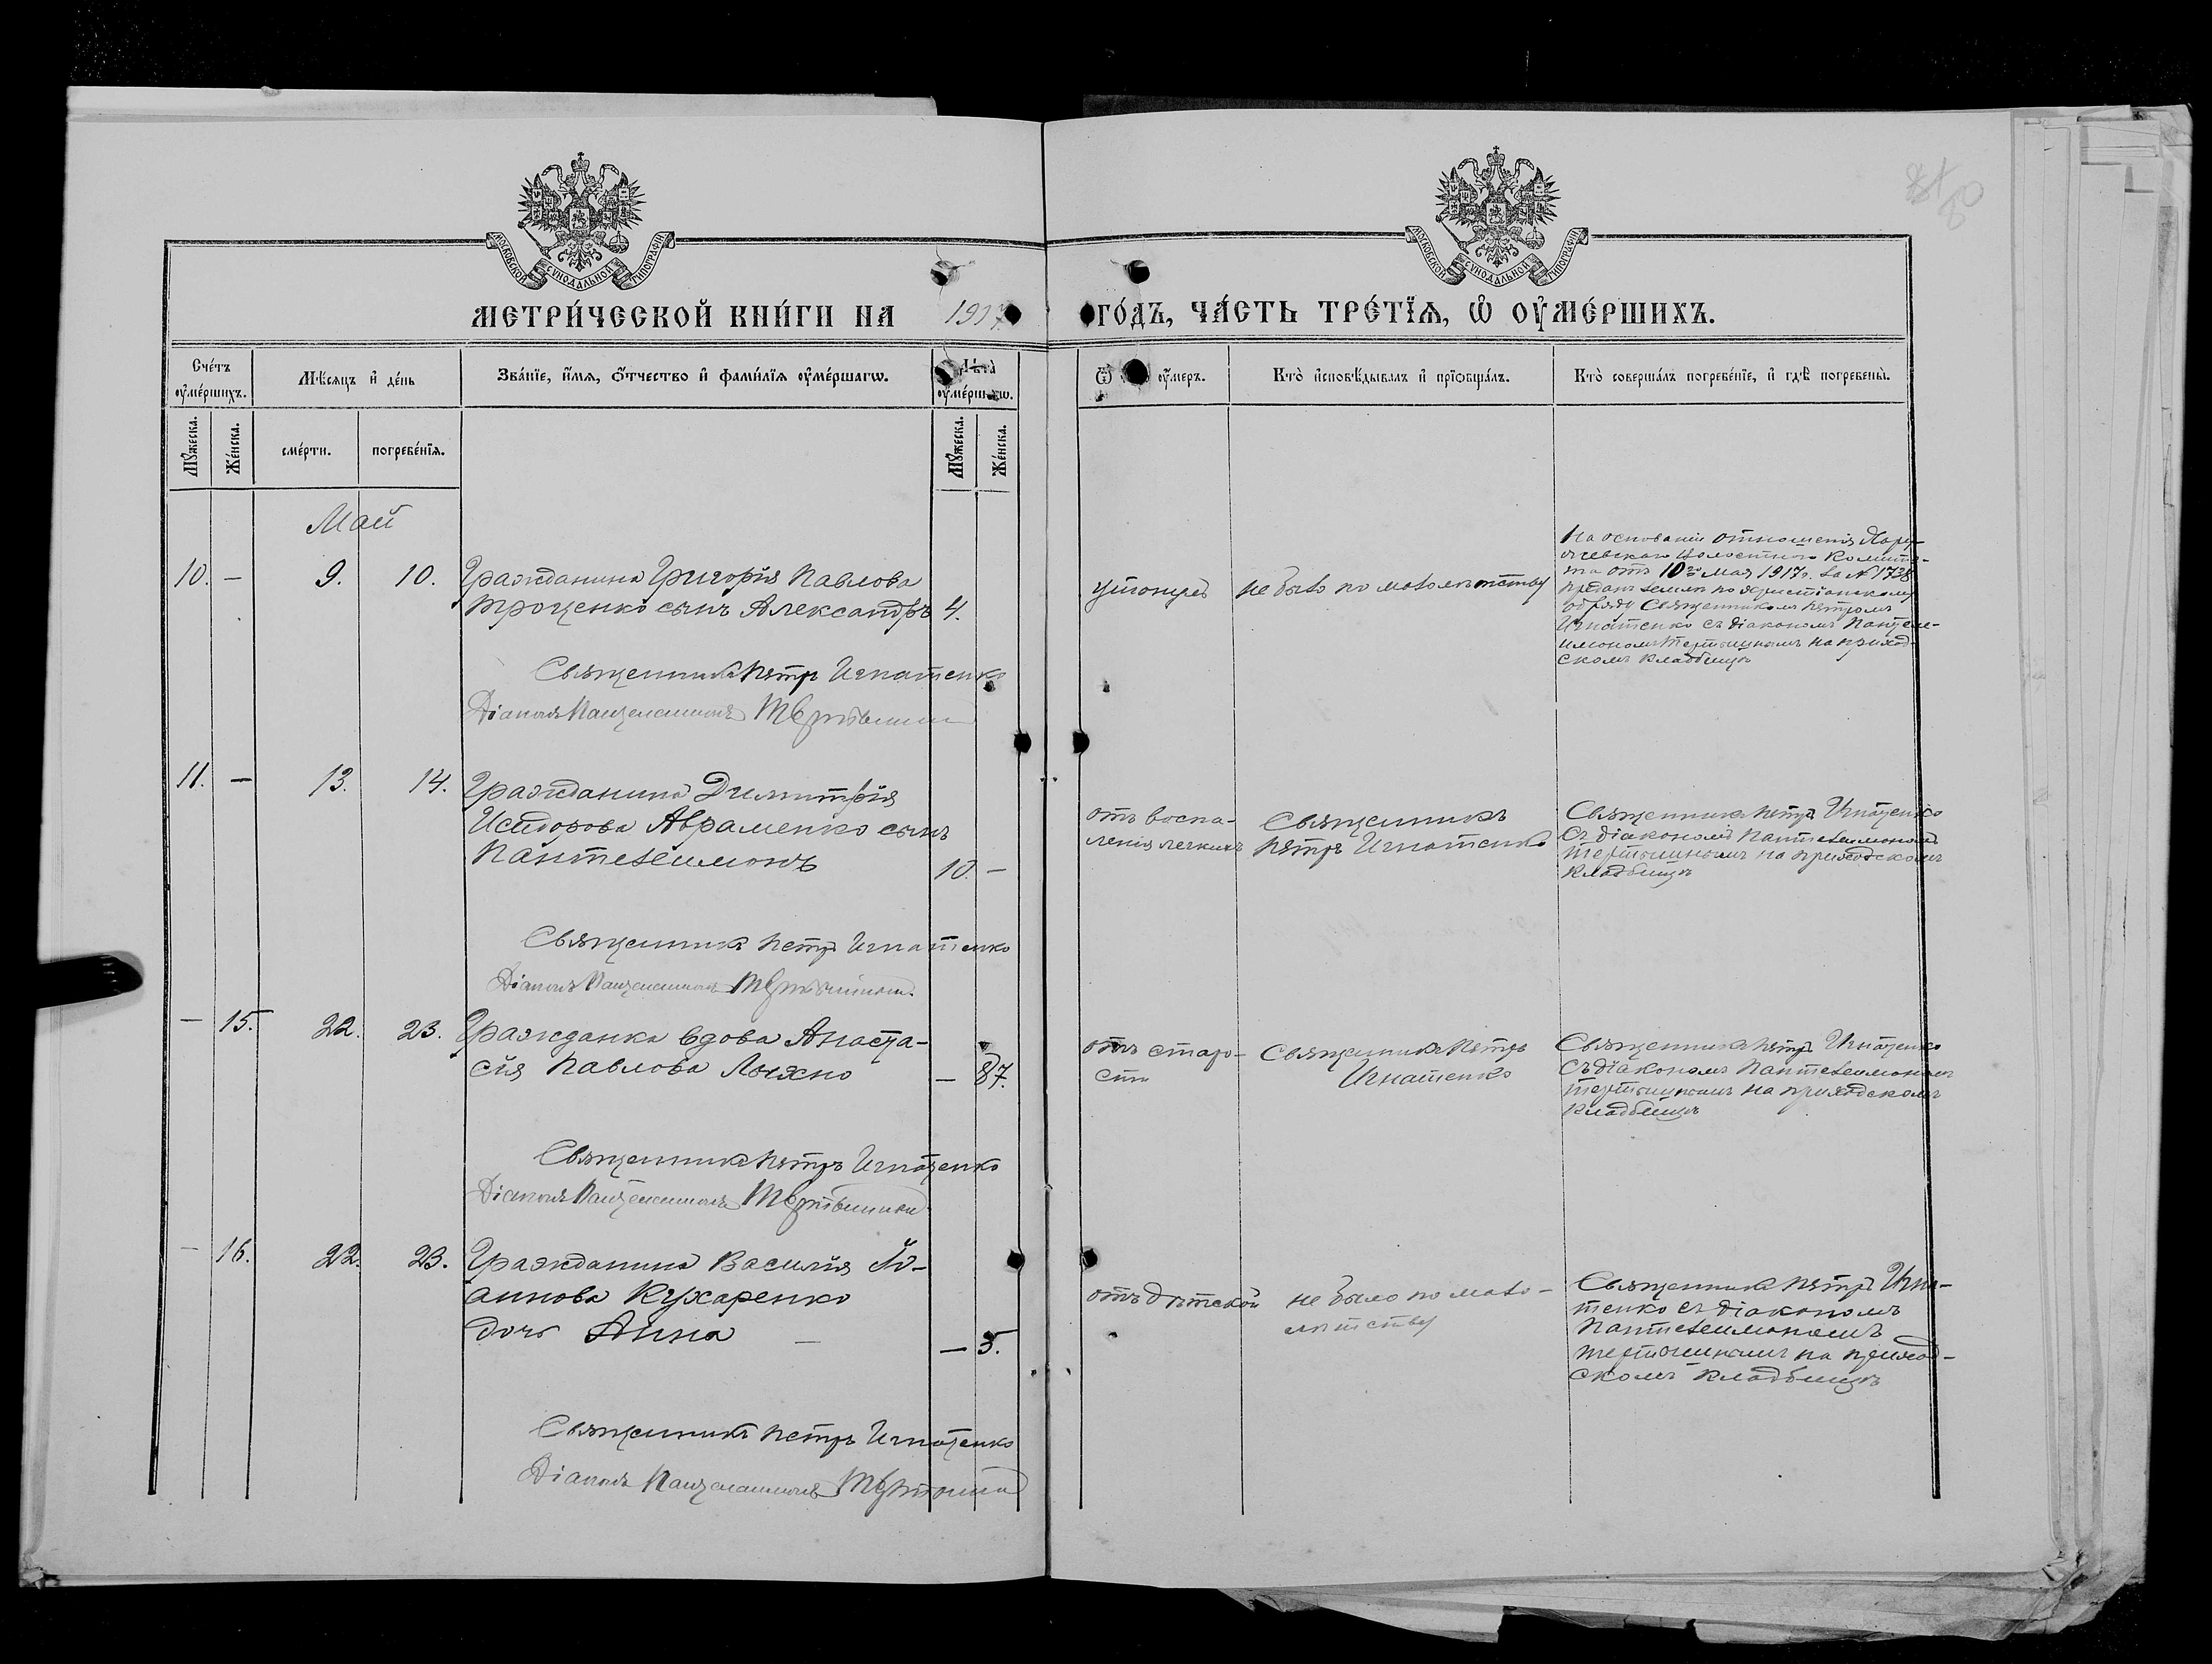 МОСКОВСКОЙ СѴНОДАЛЬНОЙ ТИПОГРАФІИ
МОСКОВСКОЙ СѴНОДАЛЬНОЙ ТИПОГРАФІИ
МЕТРИ́ЧЕСКОЙ КНИ́ГИ НА 1917
ГО́ДЪ, ЧА́СТЬ ТРЕ́ТЇѦ, Ѡ҆ ОУ҆МЕ́РШИХЪ.
Сче́тъ оу҆ме́ршихъ.
Мѣ́сѧцъ и҆ де́нь
Зва́нїе, и҆́мѧ, ѻ҆́тчество и҆ фами́лїѧ оу҆ме́ршагѡ.
Лѣ́та оу҆ме́ршагѡ.
Ѿ оу҆́меръ.
Кто̀ и҆сповѣ́дывалъ и҆ прїѡбща́лъ.
Кто̀ соверша́лъ погребе́нїе, и҆ гдѣ̀ погребены̀.
Мꙋ́жеска.
Же́нска.
сме́рти.
погребе́нїѧ.
Мꙋ́жеска.
Же́нска.
Май
10. — 9. 10.
Гражданина Григорія Павлова
Троценко сынъ Александръ 4.
не было по малолѣтству
На основаніи отношенія
волостного Комите-
та отъ 10го Мая 1917 г. за № 1728
преданъ землѣ по христіанскому
обряду Священникомъ Петромъ
Игнатенко съ діакономъ Пантеле-
имономъ Тертышнымъ на приход-
скомъ кладбищѣ
Священникъ Петръ Игнатенко
Діаконъ Пантелеимонъ Тертышный
11. — 13. 14.
Гражданина Димитрія
Исидорова Авраменко сынъ
Пантелеимонъ 10. —
отъ воспа-
ленія легкихъ
Священникъ
Петръ Игнатенко
Священникъ Петръ Игнатенко
съ діакономъ Пантелеимономъ
Тертышнымъ на приходскомъ
кладбищѣ
Священникъ Петръ Игнатенко
Діаконъ Пантелеимонъ Тертышный
— 15. 22. 23.
Гражданка вдова Анаста-
сія Павлова — 87.
отъ старо-
сти
Священникъ Петръ
Игнатенко
Священникъ Петръ Игнатенко
съ діакономъ Пантелеимономъ
Тертышнымъ на приходскомъ
кладбищѣ
Священникъ Петръ Игнатенко
Діаконъ Пантелеимонъ Тертышный
— 16. 22. 23.
Гражданина Василія Іо-
аннова Кухаренко
дочь Анна — 5.
отъ дѣтской
не было по мало-
лѣтству
Священникъ Петръ Игна-
тенко съ діакономъ
Пантелеимономъ
Тертышнымъ на приход-
скомъ кладбищѣ
Священникъ Петръ Игнатенко
Діаконъ Пантелеимонъ Тертышный